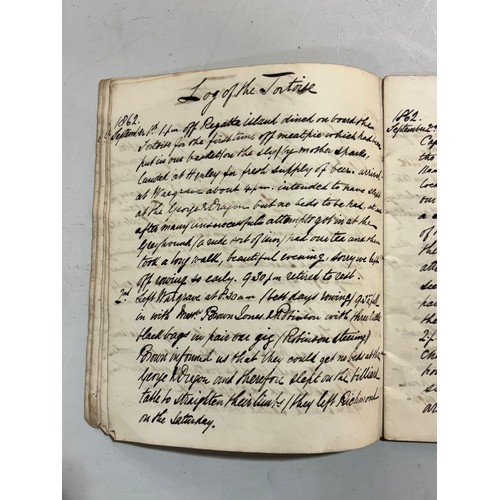 Log of the Tortoise
1862.
September 1st 1 p.m. off Regatta island dined on board the
Tortoise for the first time off meat pie which had been
put in our basket on the sly by mother Sparks,
landed at Henley for fresh supply of beer. arrived
at Wargrave about 4 p.m. intended to have slept
at the George & Dragon but no beds to be had, at
after many unsuccessful attempts got in at the
Greyhound / a rude sort of inn / had our tea and then
took a long walk, beautiful evening. sorry we
off rowing so early. 9.30 p.m. retired to rest.
2nd. Left Wargrave at 8.30 am / best days rowing / 9.5 fell
in with Messrs Brown Jones & Robinson with three little
black bags in pair oar gig / Robinson steering /
Brown informed us that they could get no beds at the
George & Dragon and therefore slept on the billiard
table to straighten their limbs / they left Richmond
on the Saturday.
1862.
September 2nd
Cap
the
loca
our
a
of
the
atte
see
pai
the
2 p
Ch
ho
s
ar